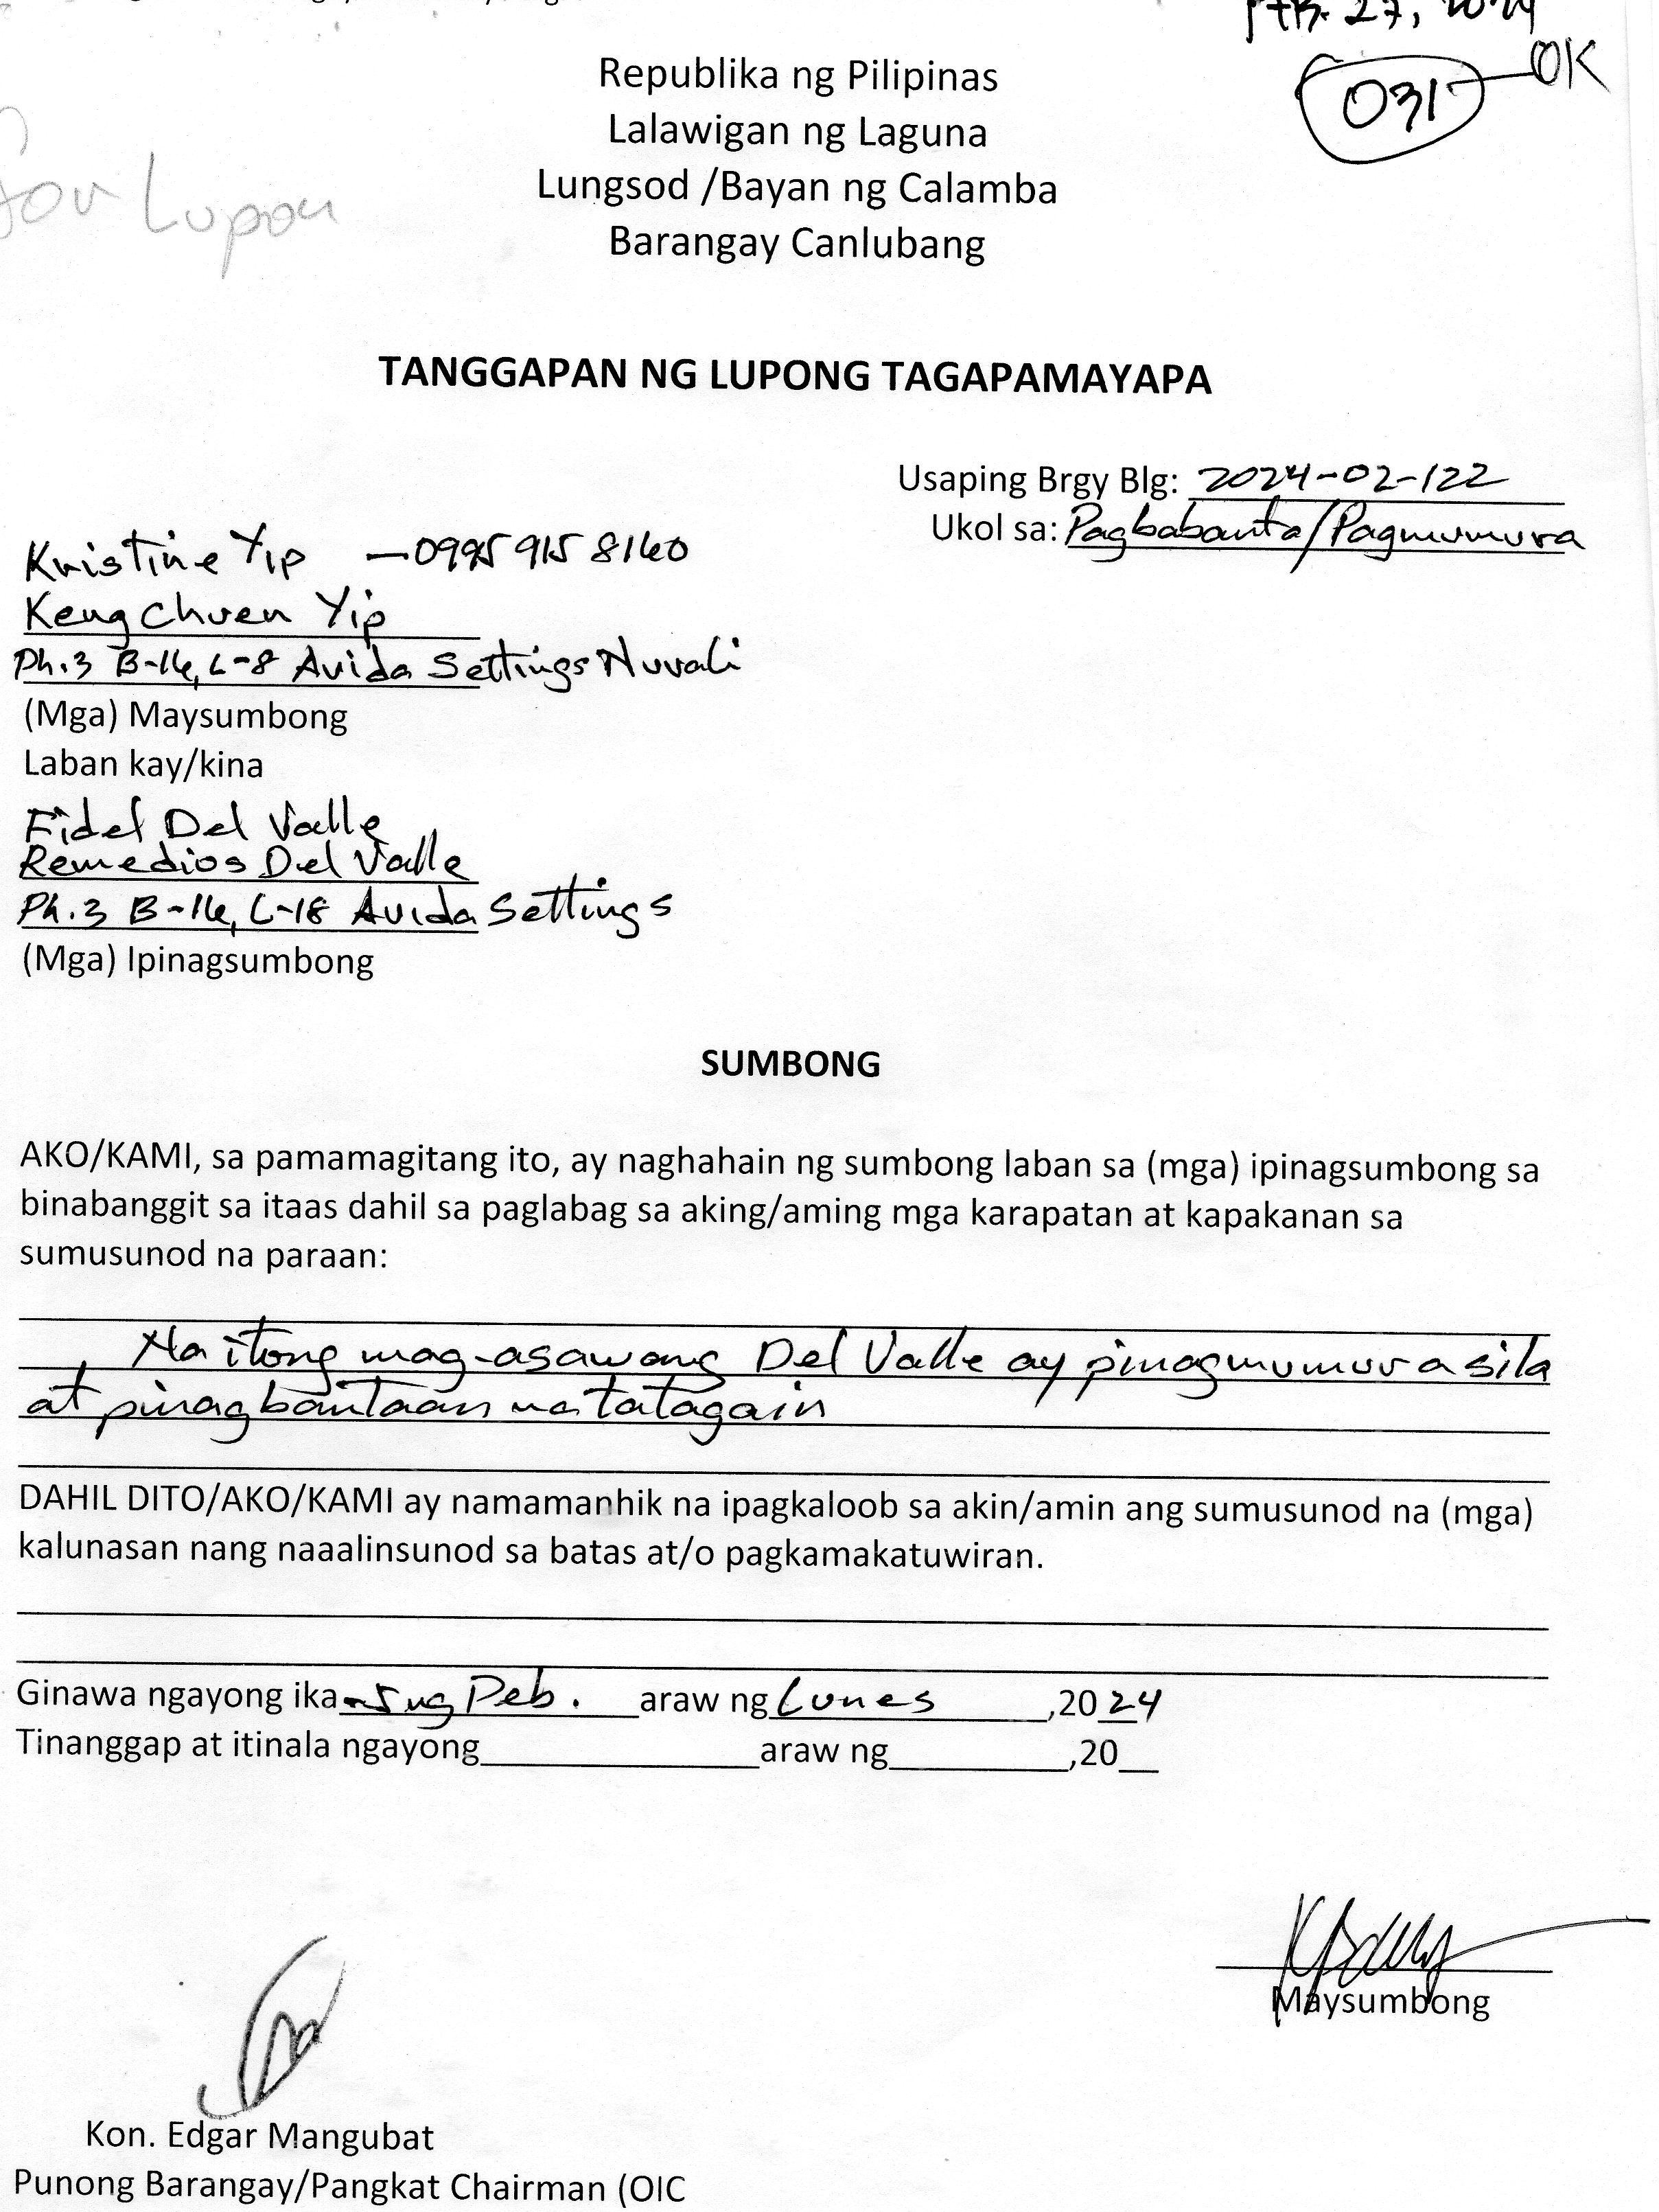 Feb. 27, 2024
031 OK
For Lupon
Republika ng Pilipinas
Lalawigan ng Laguna
Lungsod /Bayan ng Calamba
Barangay Canlubang
TANGGAPAN NG LUPONG TAGAPAMAYAPA
Usaping Brgy Blg: 2024-02-122
Ukol sa: Pagbabanta/Pagmumura
Kristine Yip —0995 915 8160
Keng Chuen Yip
Ph.3 B-16, L-8 Avida Settings Nuvali
(Mga) Maysumbong
Laban kay/kina
Fidel Del Valle
Remedios Del Valle
Ph.3 B-16, L-18 Avida Settings
(Mga) Ipinagsumbong
SUMBONG
AKO/KAMI, sa pamamagitang ito, ay naghahain ng sumbong laban sa (mga) ipinagsumbong sa
binabanggit sa itaas dahil sa paglabag sa aking/aming mga karapatan at kapakanan sa
sumusunod na paraan:
Na itong mag-asawang Del Valle ay pinagmumura sila
at pinagbantaan na tatagain
DAHIL DITO/AKO/KAMI ay namamanhik na ipagkaloob sa akin/amin ang sumusunod na (mga)
kalunasan nang naaalinsunod sa batas at/o pagkamakatuwiran.
Ginawa ngayong ika-5 ng Peb. araw ng Lunes ,2024
Tinanggap at itinala ngayong araw ng ,20
Maysumbong
Kon. Edgar Mangubat
Punong Barangay/Pangkat Chairman (OIC